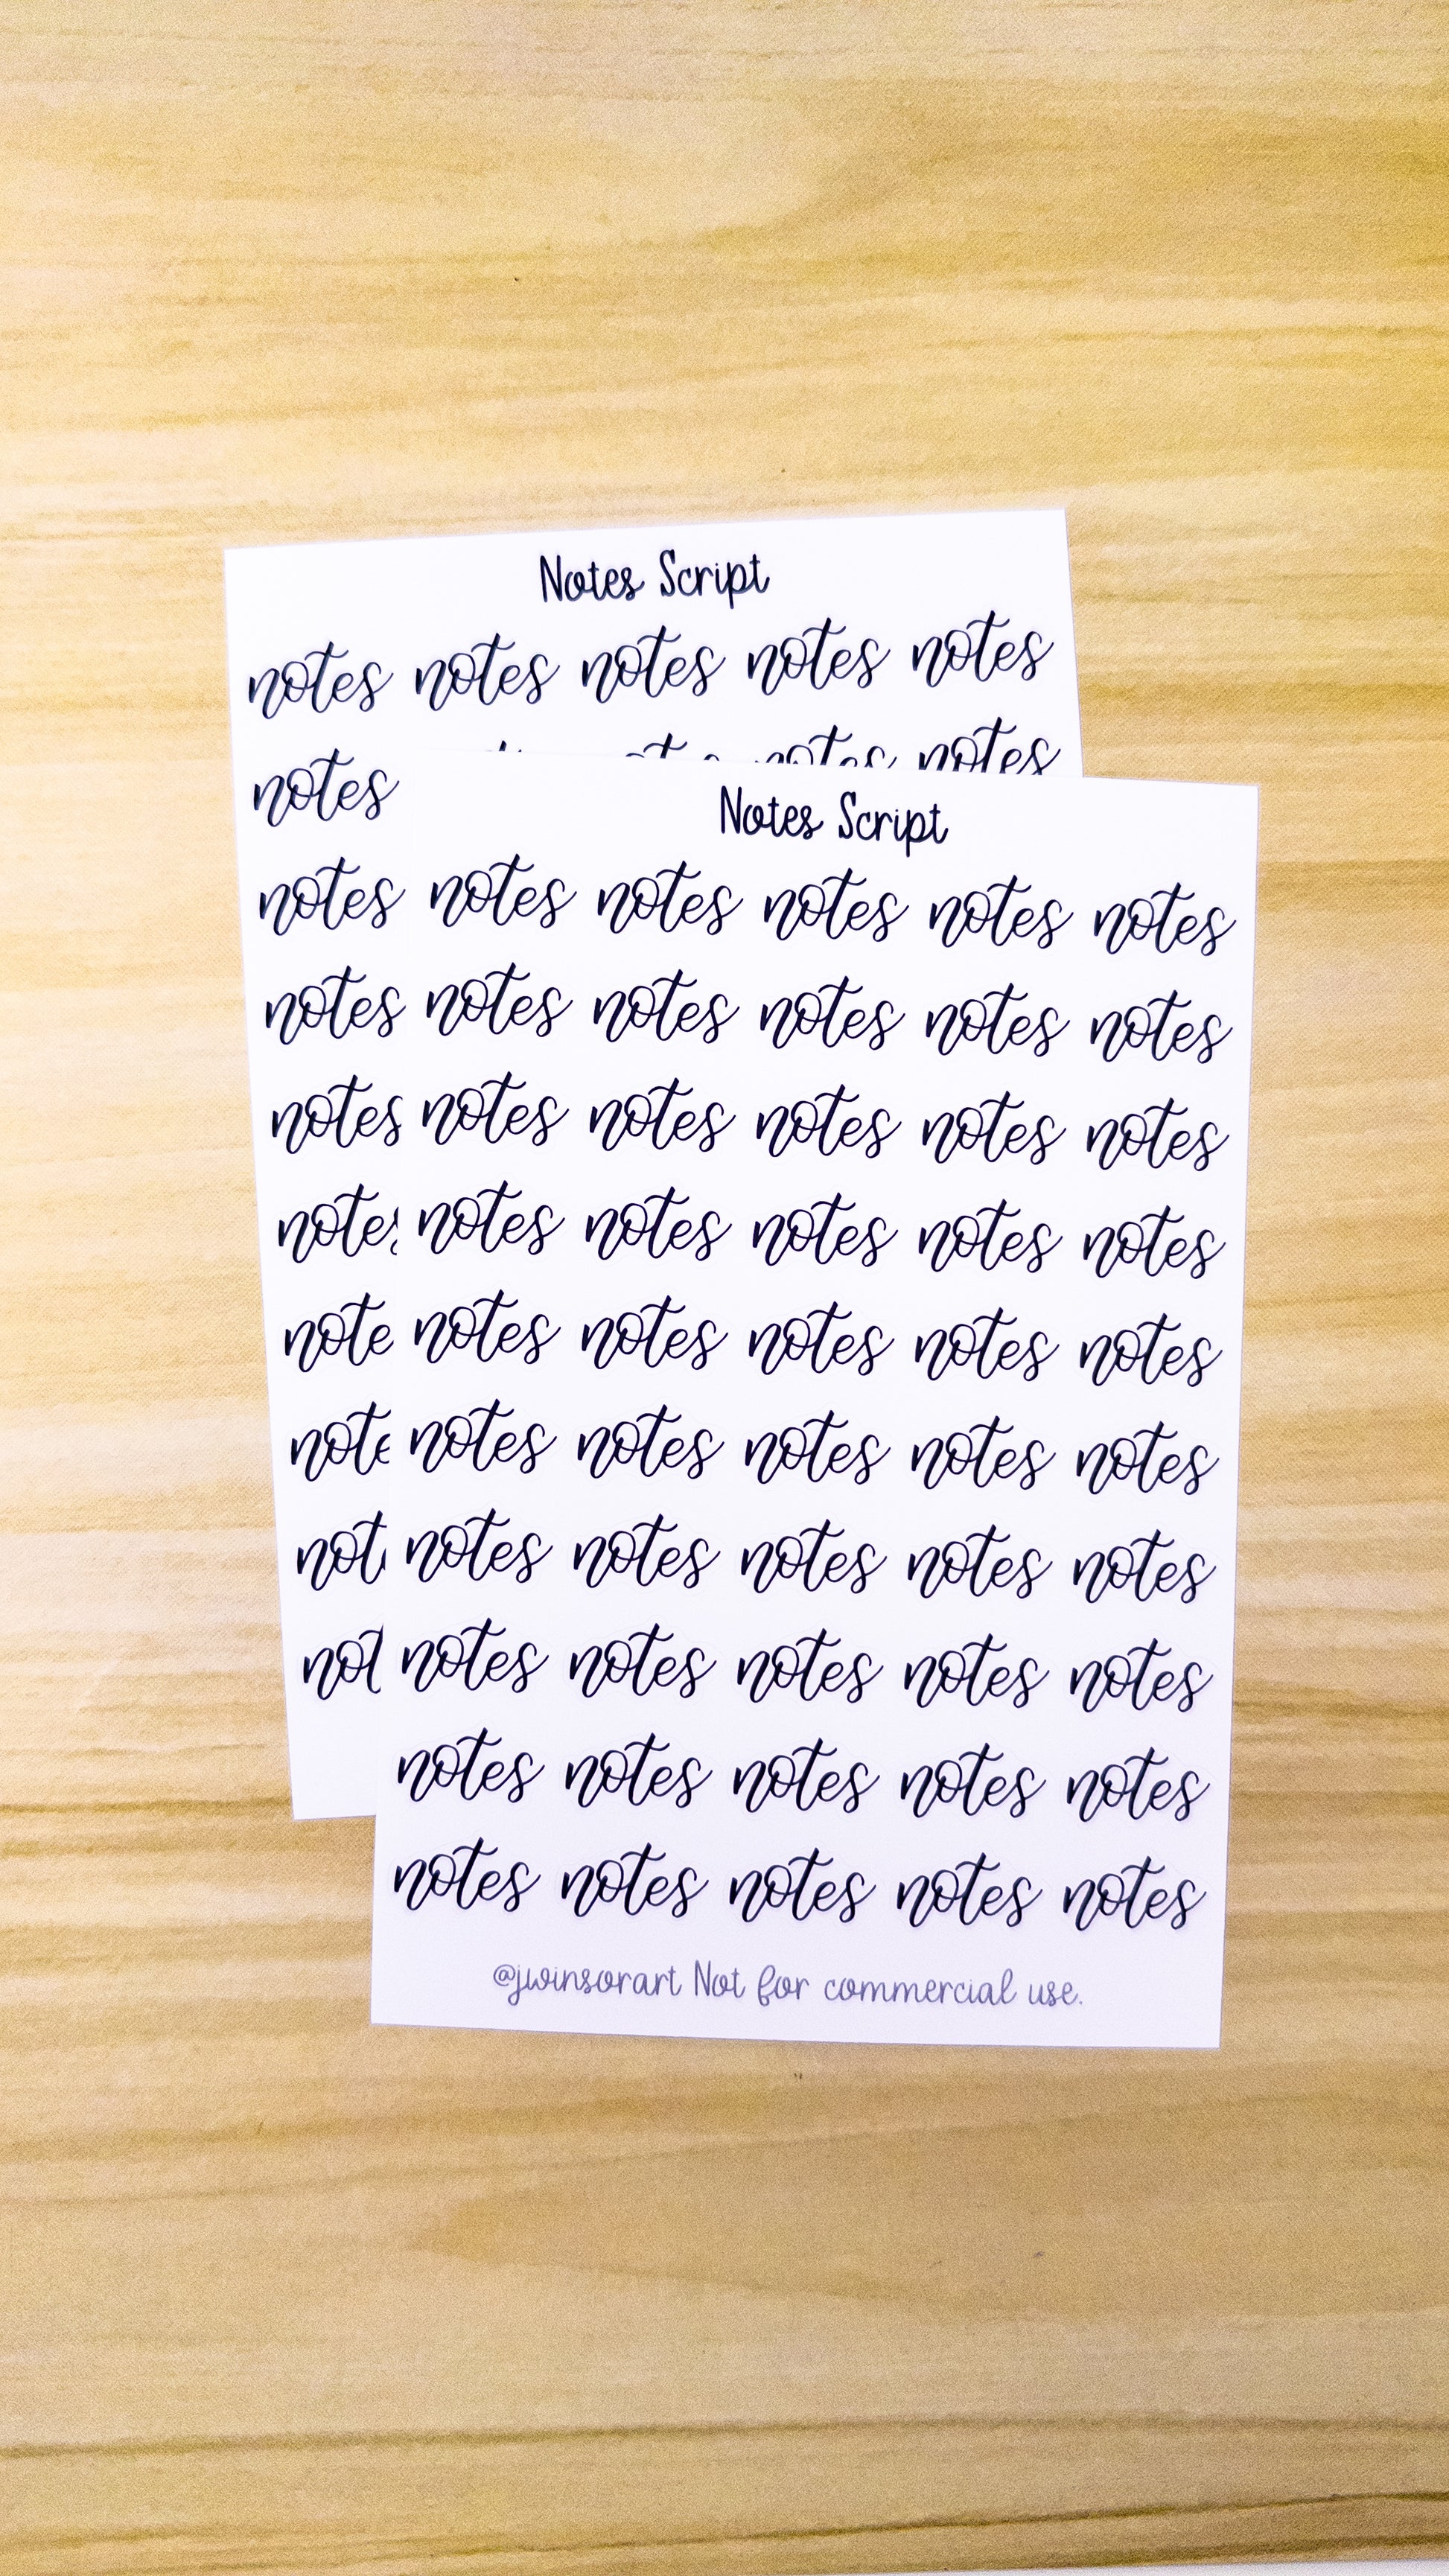 Notes Script
notes notes notes notes notes
notes notes notes
notes
notes
notes
notes
note
note
not
not
Notes Script
notes notes notes notes notes
notes notes notes notes notes
notes notes notes notes notes
notes notes notes notes notes
notes notes notes notes notes
notes notes notes notes notes
notes notes notes notes notes
notes notes notes notes notes
notes notes notes notes notes
notes notes notes notes notes
@jwinsorart Not for commercial use.